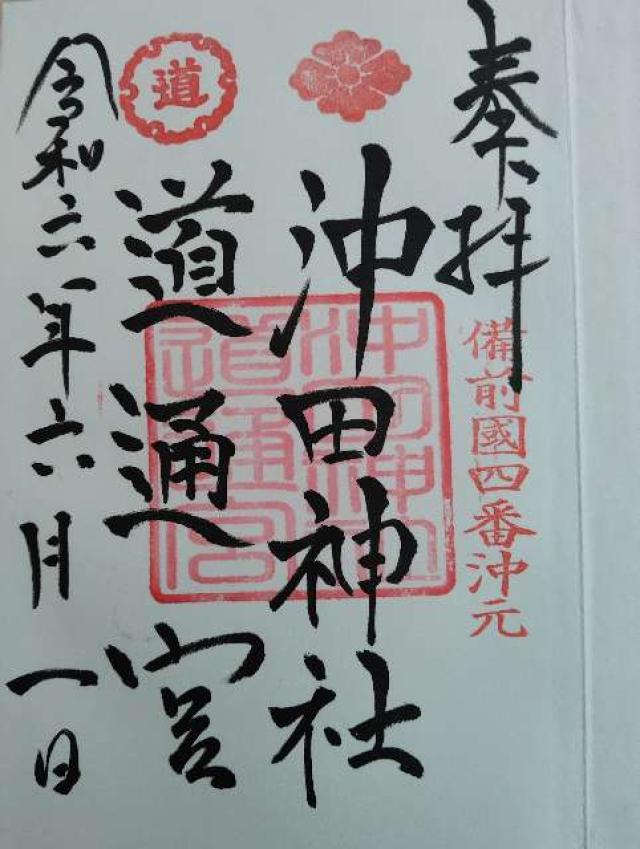 奉拝
備前國四番沖元
沖田神社
道
道通宮
沖田神社
道通宮
令和六年六月一日